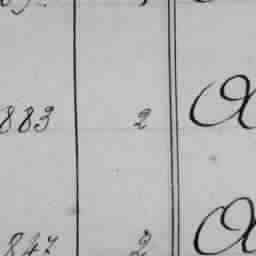 883 2 a
847 2 a